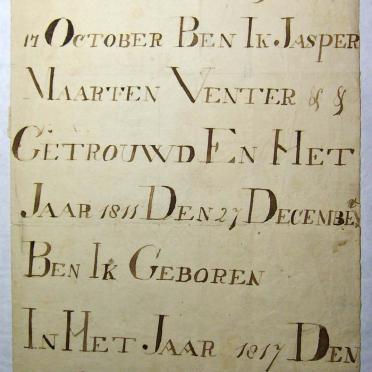 17 OCTOBER BEN IK JASPER
MAARTEN VENTER & &
GETROUWD EN HET
JAAR 1811 DEN 27 DECEMBER
BEN IK GEBOREN
IN HET JAAR 1817 DEN